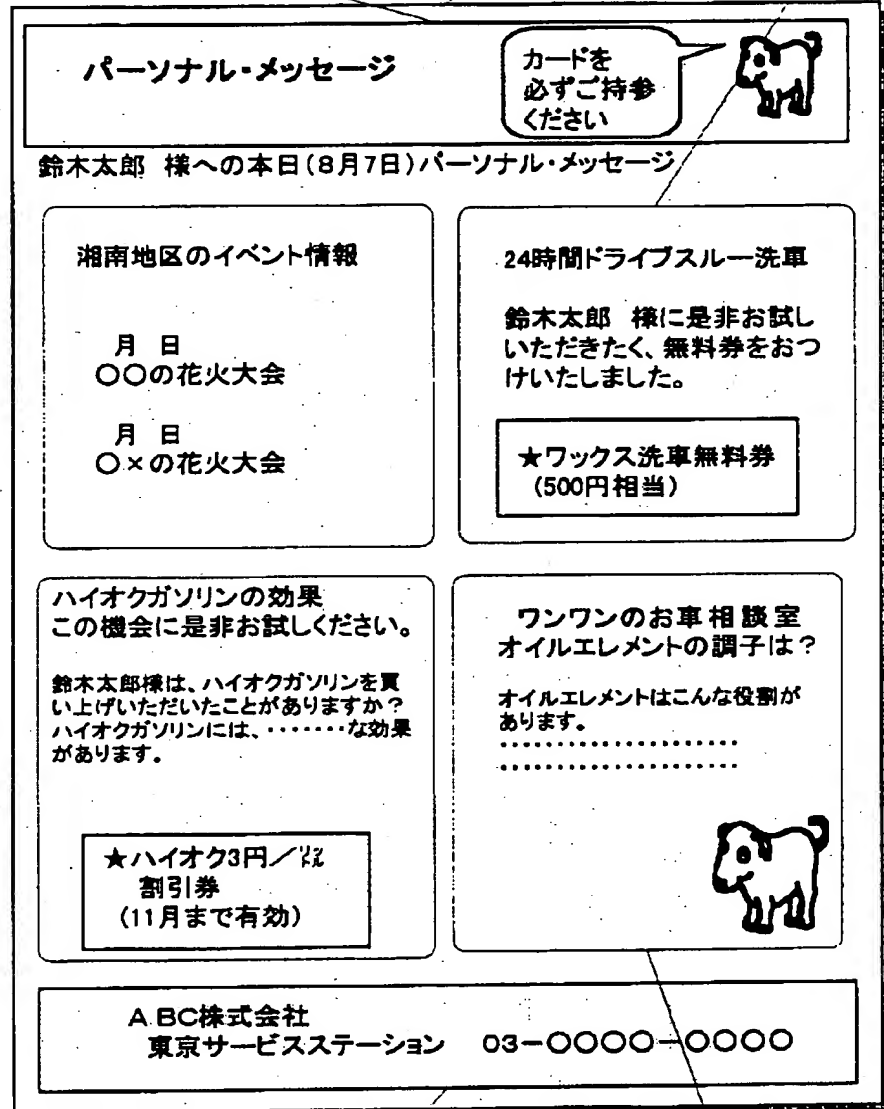 パーソナル・メッセージ
カードを
必ずご持参
ください
鈴木太郎 様への本日(8月7日)パーソナル・メッセージ
湘南地区のイベント情報
月 日
〇〇の花火大会
月 日
〇×の花火大会
24時間ドライブスルー洗車
鈴木太郎 様に是非お試し
いただきたく、無料券をおつ
けいたしました。
★ワックス洗車無料券
(500円相当)
ハイオクガソリンの効果
この機会に是非お試しください。
鈴木太郎様は、ハイオクガソリンを買
い上げいただいたことがありますか?
ハイオクガソリンには、・・・・・・・な効果
があります。
★ハイオク3円／㍑
割引券
(11月まで有効)
ワンワンのお車相談室
オイルエレメントの調子は?
オイルエレメントはこんな役割が
あります。
・・・・・・・・・・・・・・・・・・・・・
・・・・・・・・・・・・・・・・・・・・・
ABC株式会社
東京サービスステーション 03-〇〇〇〇-〇〇〇〇